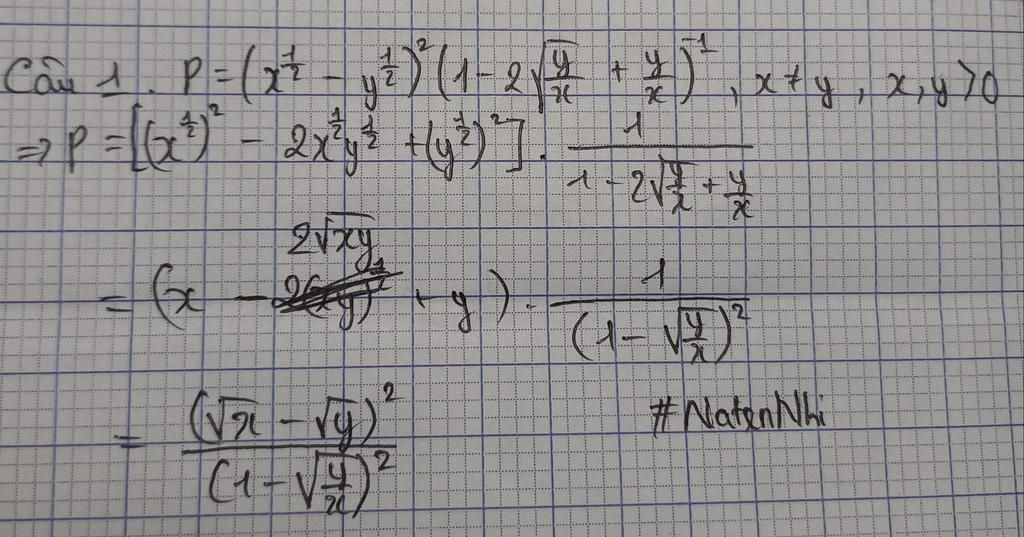 Câu 1. P = (x^{1/2} - y^{1/2})^2 (1 - 2√(y/x) + y/x)^{-1}, x ≠ y, x, y > 0
=> P = [(x^{1/2})^2 - 2x^{1/2}y^{1/2} + (y^{1/2})^2] . 1/(1 - 2√(y/x) + y/x)
= (x - 2√(xy) + y) . 1/(1 - √(y/x))^2
= (√x - √y)^2/(1 - √(y/x))^2
#NatsnNhi